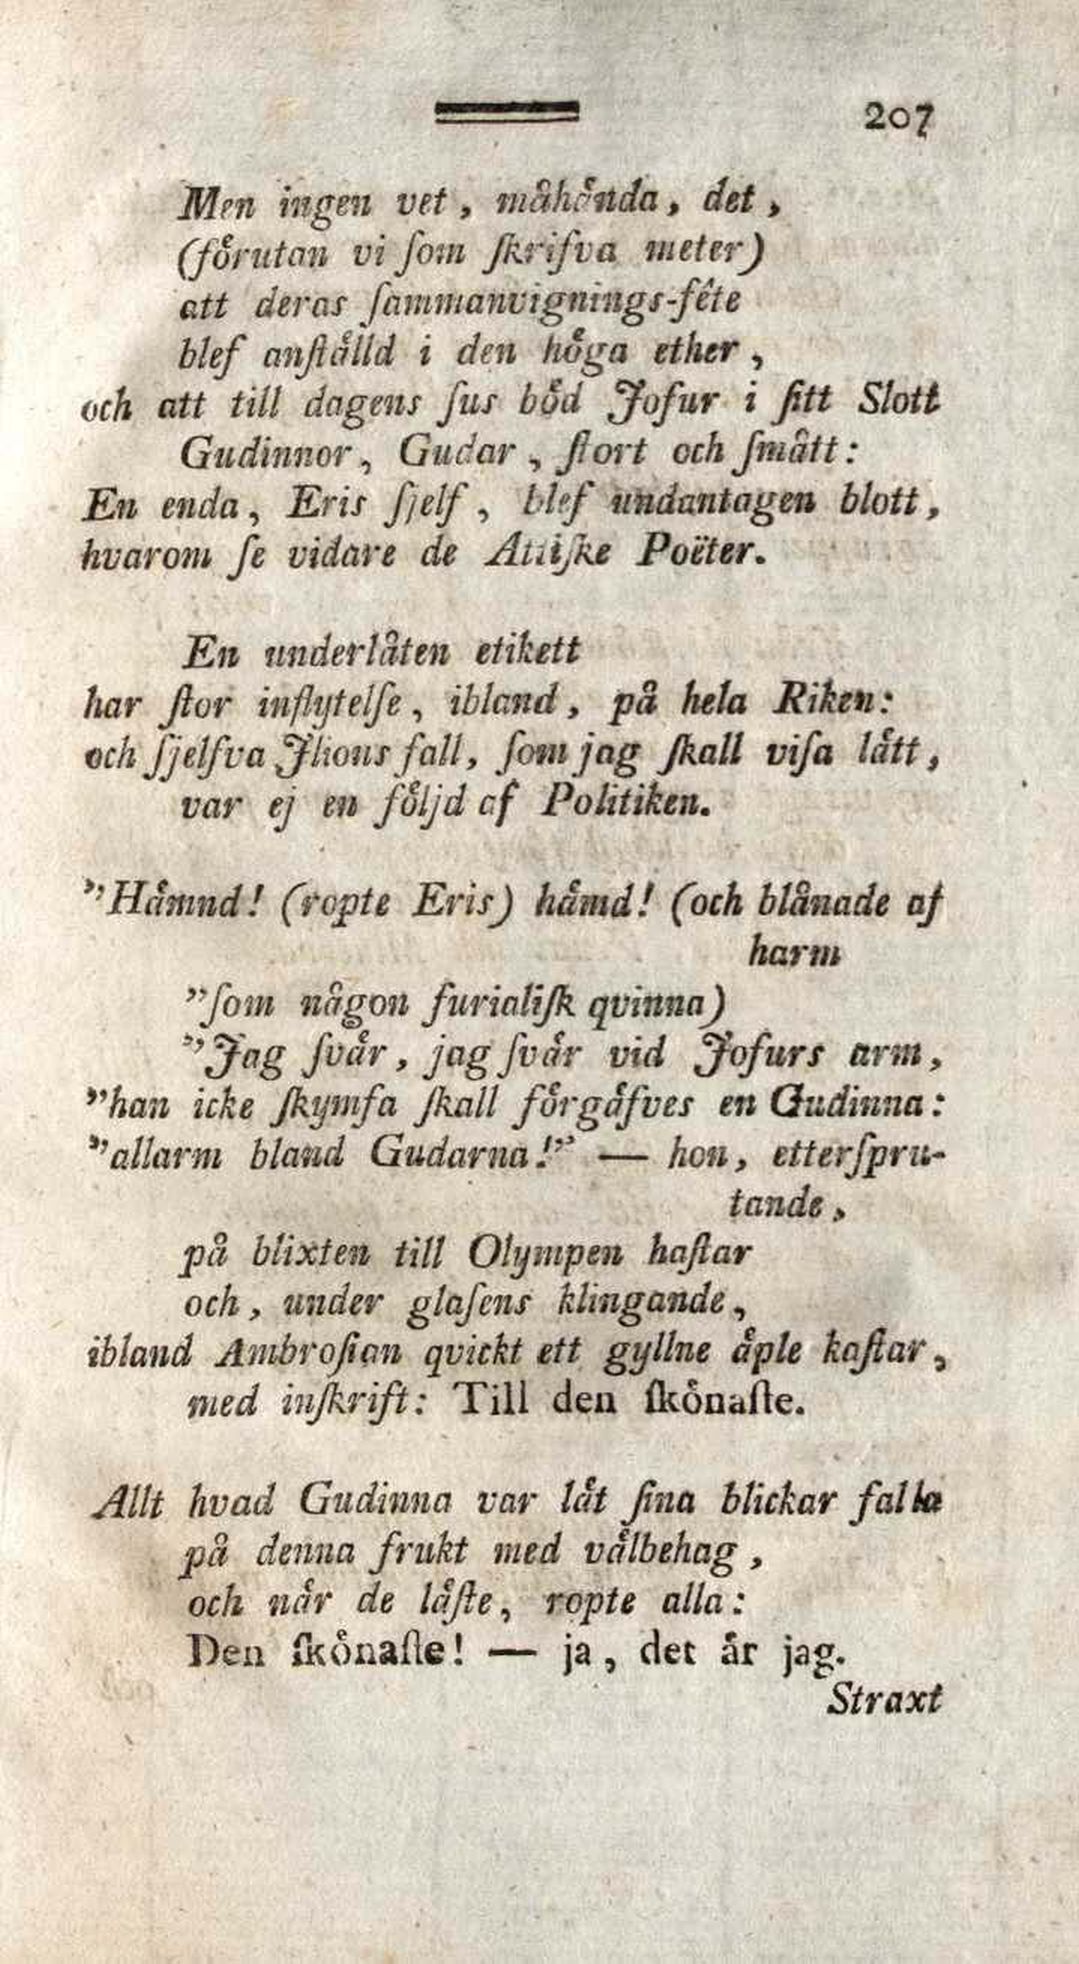 207
Men ingen vet, måhånda, det,
(fårutan vi ſom ſkrifva meter)
att deras ſammanvignings-fête
blef anſtålld i den håga ether,
och att till dagens ſus båd Jofur i ſitt Slott
Gudinnor, Gudar, ſtort och ſmått:
En enda, Eris ſjelf, blef undantagen blott,
hvarom ſe vidare de Attiſke Poëter.
En underlåten etikett
har ſtor inflytelſe, ibland, på hela Riken:
och ſjelfva Jlions fall, ſom jag ſkall viſa lått,
var ej en fôljd af Politiken.
"Håmnd! (ropte Eris) håmd! (och blånade af
harm
"ſom någon furialiſk qvinna)
"Jag ſvår, jag ſvår vid Jofurs arm,
"han icke ſkymfa ſkall förgåfves en Gudinna:
"allarm bland Gudarna!" — hon, etterſpru-
tande,
på blixten till Olympen haſtar
och, under glaſens klingande,
ibland Ambroſian qvickt ett gyllne åple kaſtar,
med inſkrift: Till den ſkönaſte.
Allt hvad Gudinna var låt ſina blickar falla
på denna frukt med vålbehag,
och når de låſte, ropte alla:
Den ſkönaſte! — ja, det år jag.
Straxt